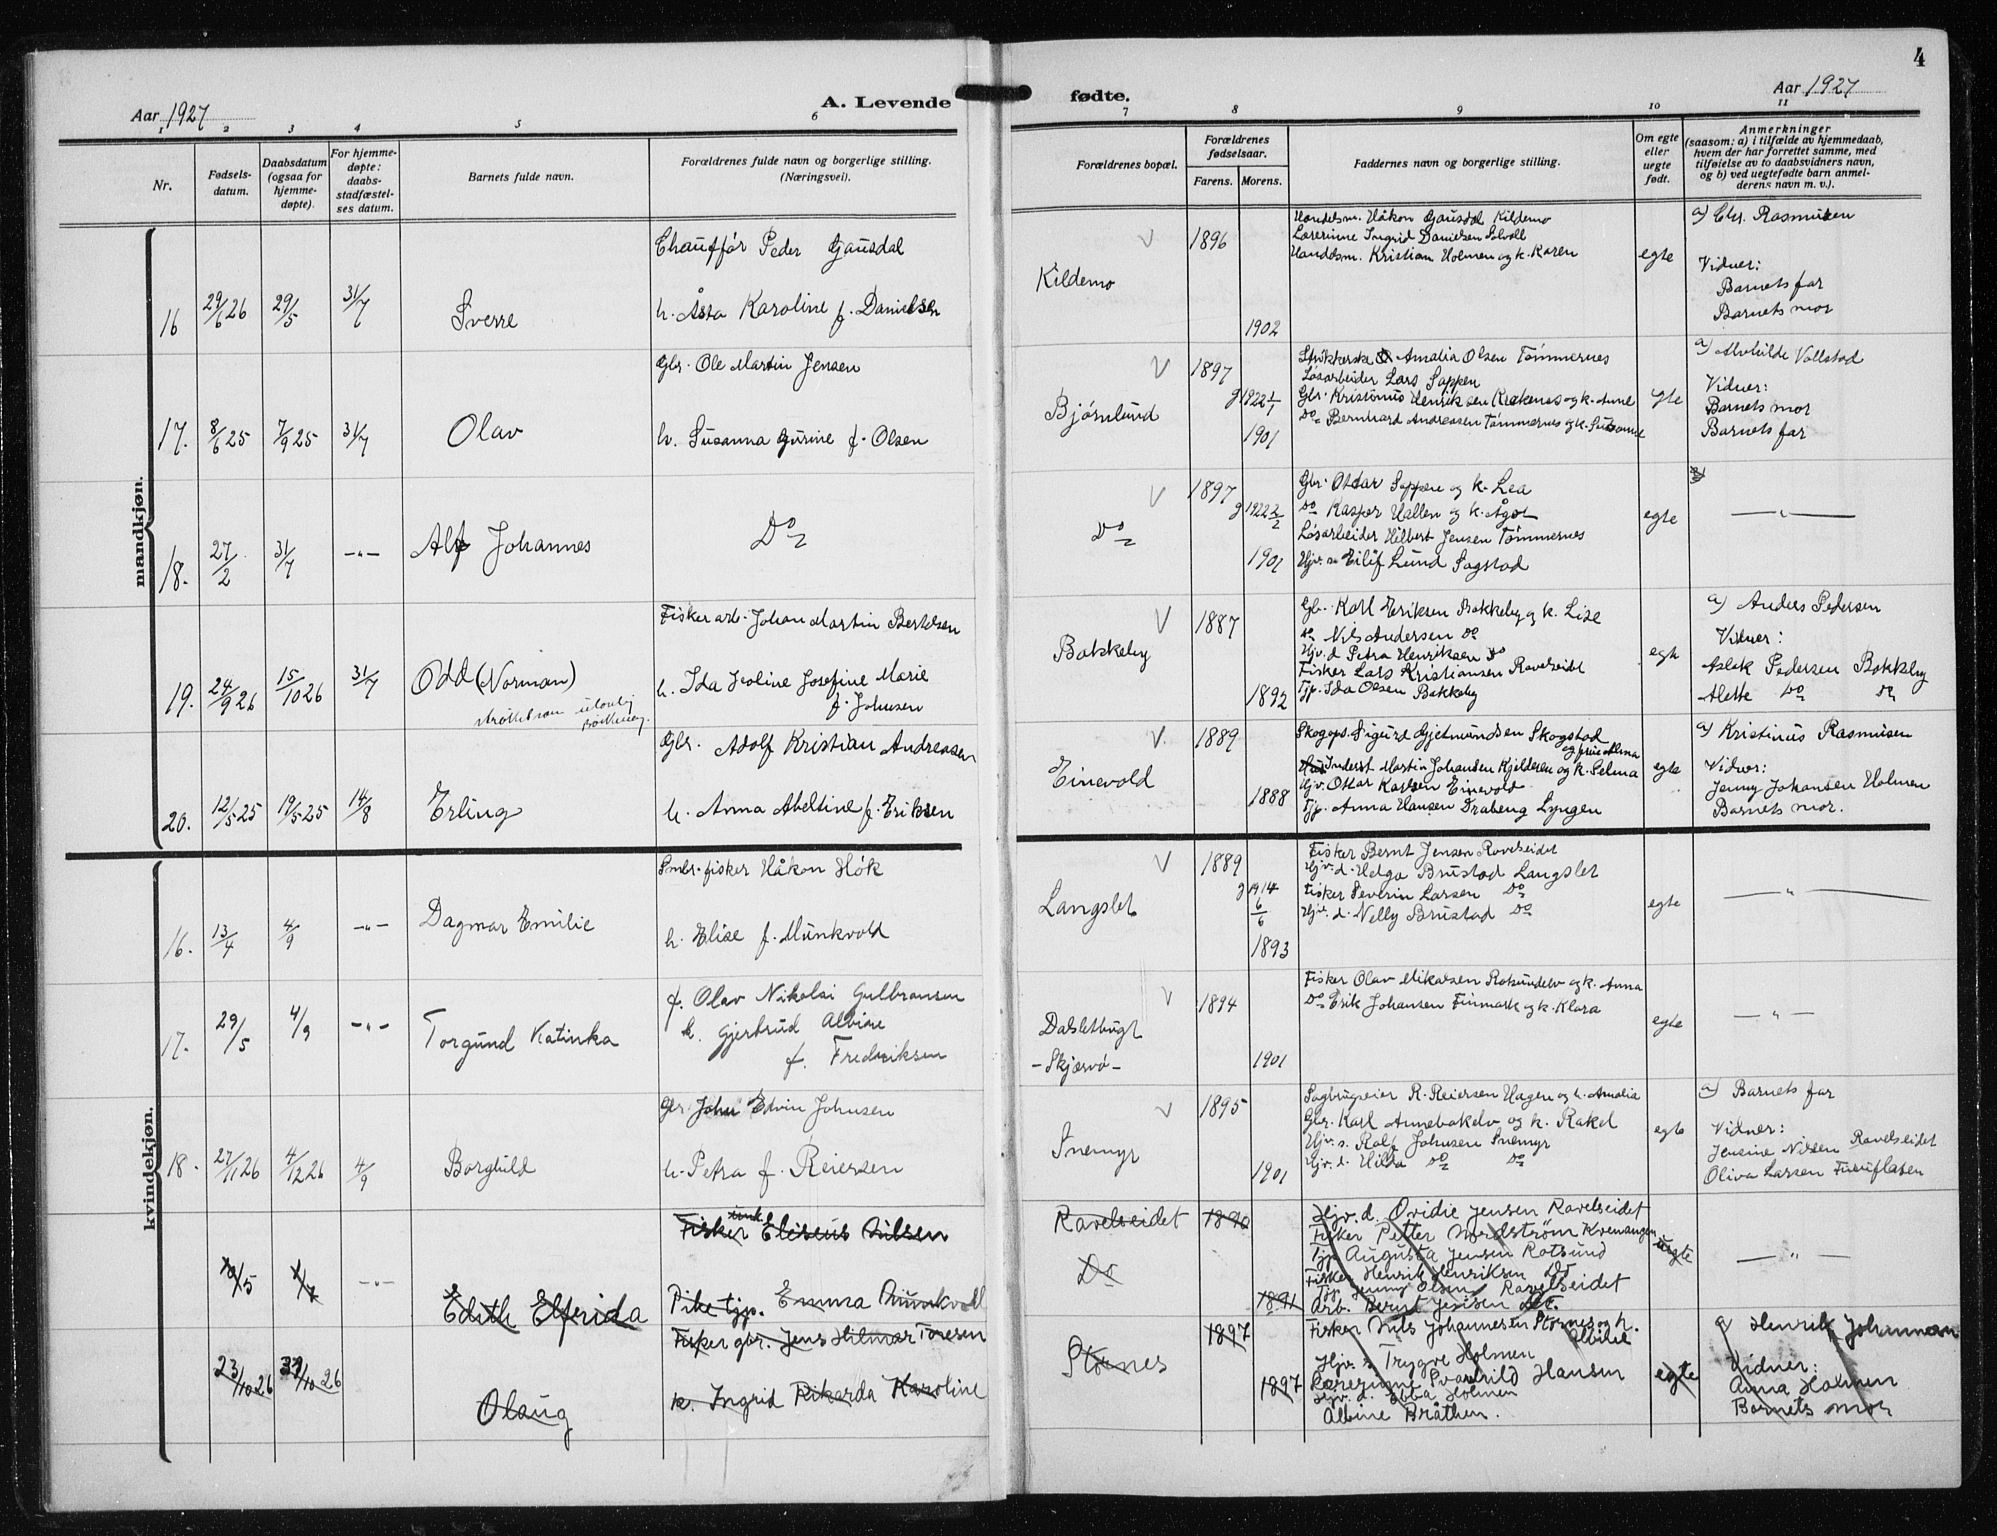 4
Aar 1927
A. Levende
fødte.
Aar 1927
1 2 3 4 5 6 7 8 9 10 11
Nr.
Fødsels-
datum.
Daabsdatum
(ogsaa for
hjemme-
døpte).
For hjemme-
døpte:
daabs-
stadfæstel-
ses datum.
Barnets fulde navn.
Forældrenes fulde navn og borgerlige stilling.
(Næringsvei).
Forældrenes bopæl.
Forældrenes
fødselsaar.
Farens. Morens.
Faddernes navn og borgerlige stilling.
Om egte
eller
uegte
født.
Anmerkninger
(saasom: a) i tilfælde av hjemmedaab,
hvem der har forrettet samme, med
tilføielse av to daabsvidners navn,
og b) ved uegtefødte barn anmel-
derens navn m. v.).
mandkjøn.
16 29/6 26 29/5 31/7 Sverre
Chauffør Peder Gausdal
h. Åsta Karoline f. Danielsen
Kildemo
1896
1902
Handelsm. Håkon Gausdal Kildemo
Lærerinne Ingrid Danielsen Solvoll
Handelsm. Kristian Holmen og k. Karen
egte
a) Chr. Rasmussen
Vidner:
Barnets far
Barnets mor
17. 8/6 25 7/9 25 31/7 Olav
Gbr. Ole Martin Jensen
h. Susanna Gurine f. Olsen
Bjørnlund
1897
g 1922 1/1
1901
Amalia Olsen Tømmernes
Løsarbeider Lars Sappen
Gbr. Kristinus Henriksen Krakenes og k. Anne
Do Bernhard Andreasen Tømmernes og k. Susanne
egte
a) Alvhilde Vollstad
Vidner:
Barnets mor
Barnets far
18. 27/2 31/7 -"- Alf Johannes
Do
Do
1897
g 1922 2/2
1901
Gbr. Ottar Sappen og k. Lea
Do Kasper Hallen og k. Ågot
Løsarbeider Hilbert Jensen Tømmernes
Hjv. s. Eilif Lund Sagstad
egte
-"-
19. 24/9 26 15/10 26 31/7 Odd (Norman)
Fisker arb. Johan Martin Bertelsen
h. Ida Isoline Josefine Marie
f. Johnsen
Bakkeby
1887
1892
Gb. Karl Eriksen Bakkeby og k. Lise
Do Nils Andersen Do
Hjv. d Petra Henriksen Do
Fisker Lars Kristiansen Ravelseidt
Tjp. Ida Olsen Bakkeby
egte
a) Anders Pedersen
Vidner:
Aslak Pedersen Bakkeby
Alette Do Do
20. 12/5 25 19/5 25 14/8 Erling
Gbr. Adolf Kristian Andreassen
h. Anna Abeltine f. Eriksen
Einevold
1889
1888
Skogops. Sigurd Gjetmundsen Skogstad
og frue Alma
Inderst Martin Johansen Kjelderen og k. Selma
Hjv. Ottar Karlsen Einevold
Tjp. Anna Hansen Drabeng Lyngen
egte
a) Kristinus Rasmusen
Vidner:
Jenny Johansen Holmen
Barnets mor.
kvindekjøn.
16. 13/4 4/9 -"- Dagmar Emilie
Smbr. fisker Håkon Hók
h. Elise f. Munkvold
Langslet
1889
g 1914 6/6
1893
Fisker Bernt Jensen Ravelseidet
Hjv. d. Helga Brustad Langslet
Fisker Severin Larsen Do
Hjv. d. Nelly Brustad Do
egte
-"-
17. 29/5 4/9 -"- Torgund Katinka
f. Olav Nikolai Gulbransen
h. Gjertrud Albine
f. Fredriksen
Dalsletbugt
-Skjærvø-
1894
1901
Fisker Olav Mikalsen Rotsundelv og k. Anna
Do Erik Johansen Finmark og k. Klara
egte
-"-
18. 27/11 26 4/12 26 4/9 Borghild
Gbr John Edvin Johnsen
h. Petra f. Reiersen
Snemyr
1895
1901
Sagbrugseier R. Reiersen Hagen og h. Amalia
Gbr. Karl Annebakelv og k. Rakel
Hjv. s. Rolf Johnsen Snemyr
Hjv. d. Hilda Do Do
egte
a) Barnets far
Vidner:
Jensine Nilsen Ravelseidet
Oliva Larsen Furuflaten
-"- Edith Elfrida
Fisker unk. Eliseus Nilsen
Pike tjp. Emma Munkvoll
Ravelseidet
Do
1890
1891
Hjv. d. Ovidie Jensen Ravelseidet
Fisker Petter Nordstrøm Kvenangen
Tjp Augusta Jensen Rotsund
Fisker Henrik Henriksen Do
Tjp. Jenny Olsen Ravelseidet
Arb. Bernt Jensen Do.
uegte
-"-
23/10 26 Olaug
Fisker gbr. Jens Hilmar Toresen
k. Ingrid Rikarda Karoline
Stornes
1897
1897
Fisker Nils Johannesen Stornes og h.
Hjv. s. Trygve Holmen
Svanhild Hansen
Hjv. d. Ebba Holmen
Albine Bråthen.
egte
a) Henrik Johannsen
Vidner:
Anna Holmen
Barnets mor